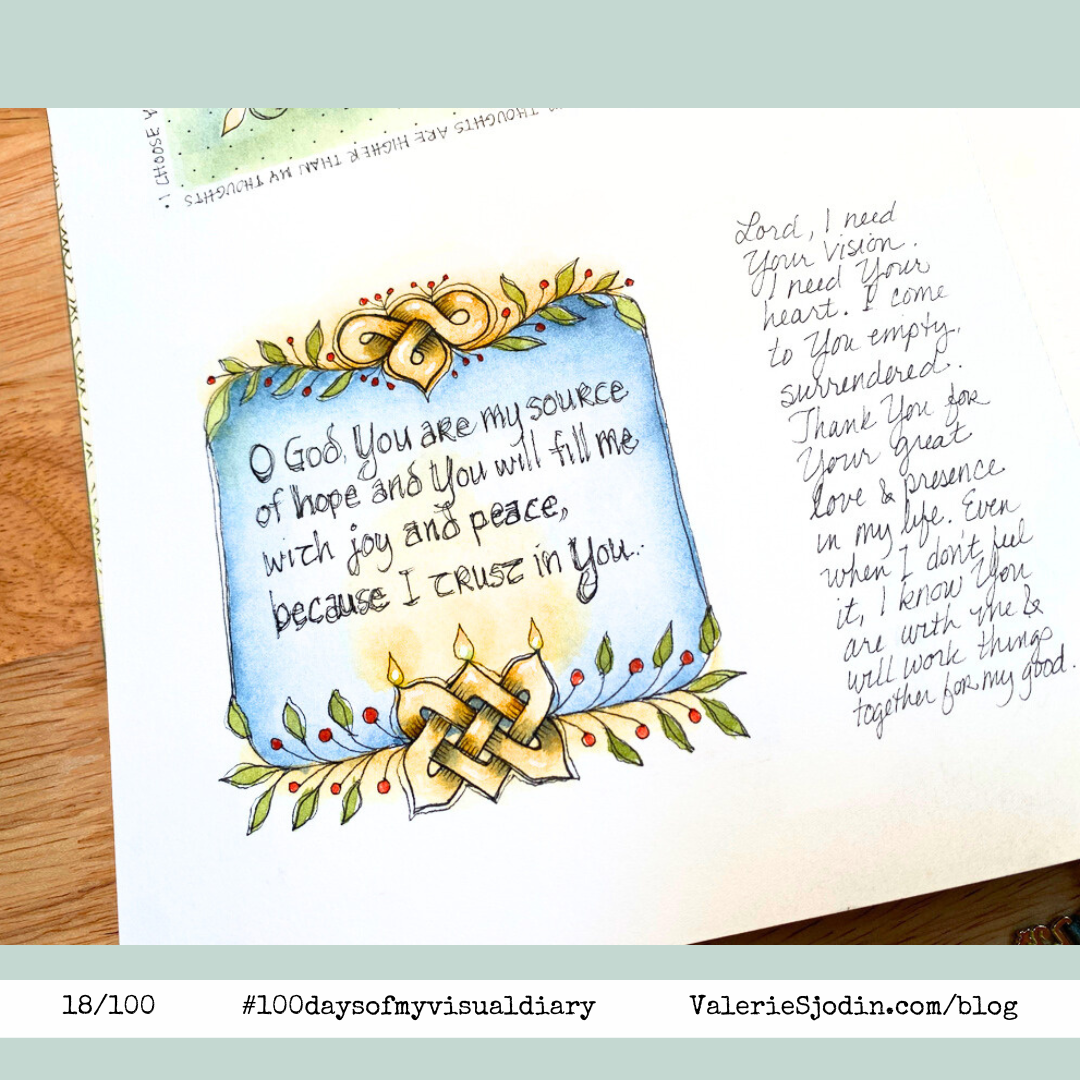 • I CHOOSE Y
THOUGHTS ARE HIGHER THAN MY THOUGHTS
O God, You are my source
of hope and You will fill me
with joy and peace,
because I trust in You.
Lord, I need
Your vision.
I need Your
heart. I come
to You empty,
surrendered.
Thank You for
Your great
love & presence
in my life. Even
when I don't feel
it, I know You
are with me &
will work things
together for my good.
18/100 #100daysofmyvisualdiary ValerieSjodin.com/blog